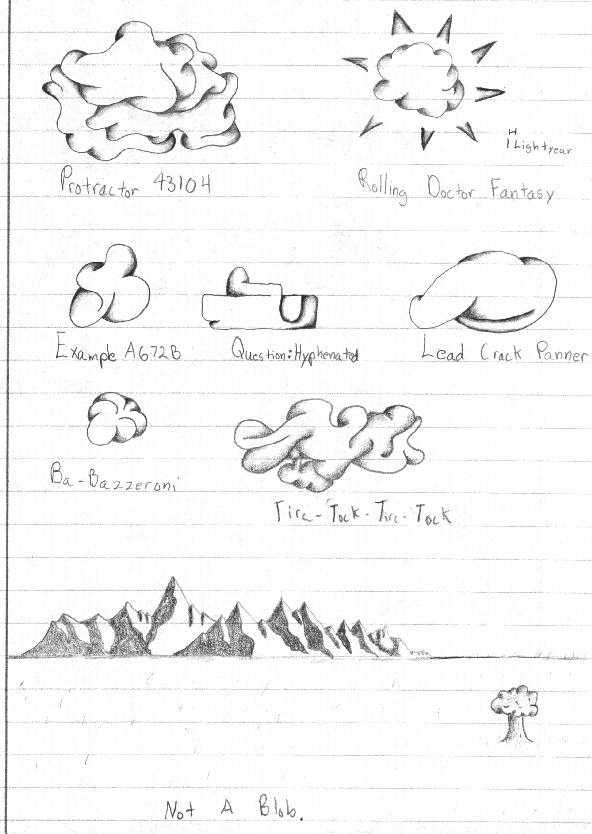 H
1 Lightyear
Protractor 43104
Rolling Doctor Fantasy
Example A672B
Question:Hyphenated
Lead Crack Panner
Ba-Bazzeroni
Tire-Tock-Tire-Tock
Not A Blob.